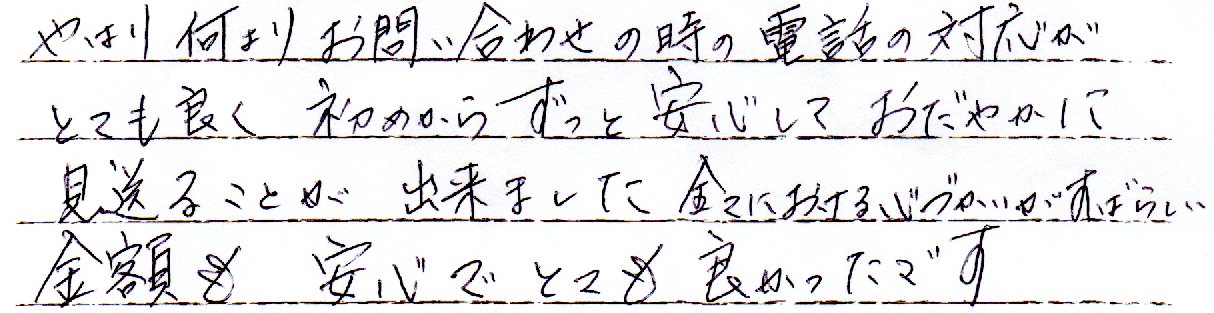 やはり何よりお問い合わせの時の電話の対応が
とても良く 初めからずっと安心して おだやかに
見送ることが 出来ました 全てにおける心づかいがすばらしい
金額も 安心でとても良かったです